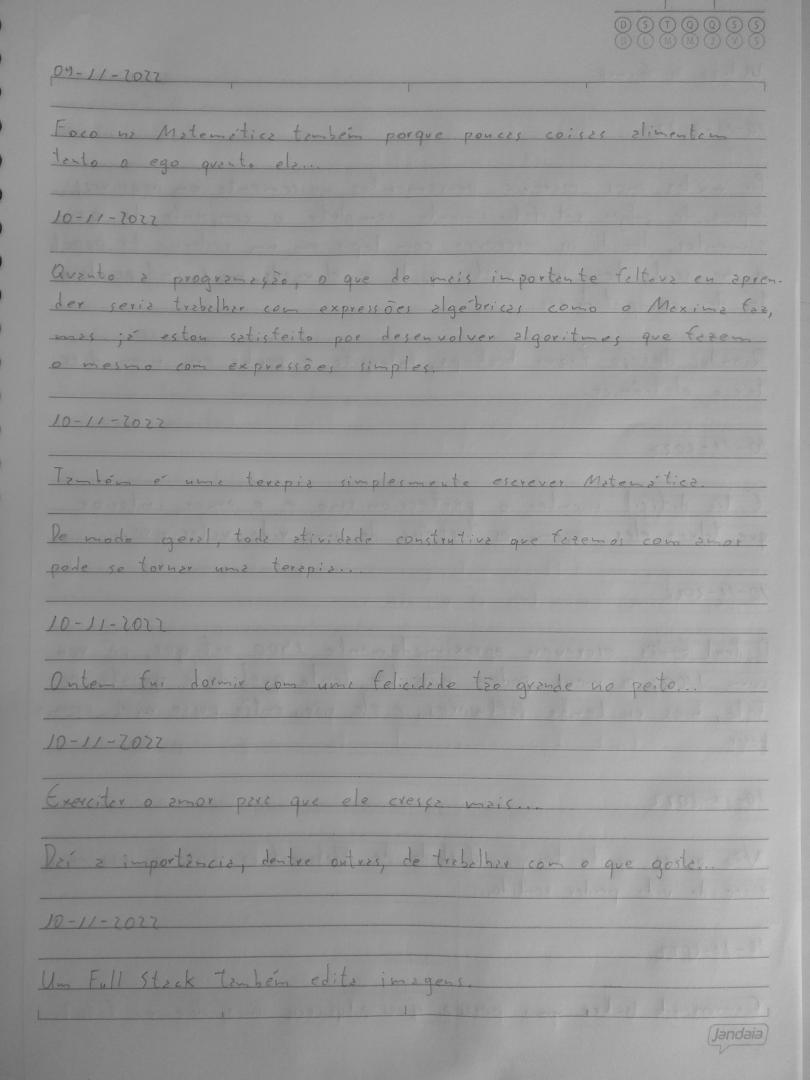 D S T Q Q S S
D L M M J V S
09-11-2022
Foco na Matemática também porque poucas coisas alimentam
tanto o ego quanto ela...
10-11-2022
Quanto a programação, o que de mais importante faltava eu apren-
der seria trabalhar com expressões algébricas como o Maxima faz,
mas já estou satisfeito por desenvolver algoritmos que fazem
o mesmo com expressões simples.
10-11-2022
Também é uma terapia simplesmente escrever Matemática.
De modo geral, toda atividade construtiva que fazemos com amor
pode se tornar uma terapia...
10-11-2022
Ontem fui dormir com uma felicidade tão grande no peito...
10-11-2022
Exercitar o amor para que ele cresça mais...
Daí a importância, dentre outras, de trabalhar com o que gosta...
10-11-2022
Um Full Stack também edita imagens.
Jandaia